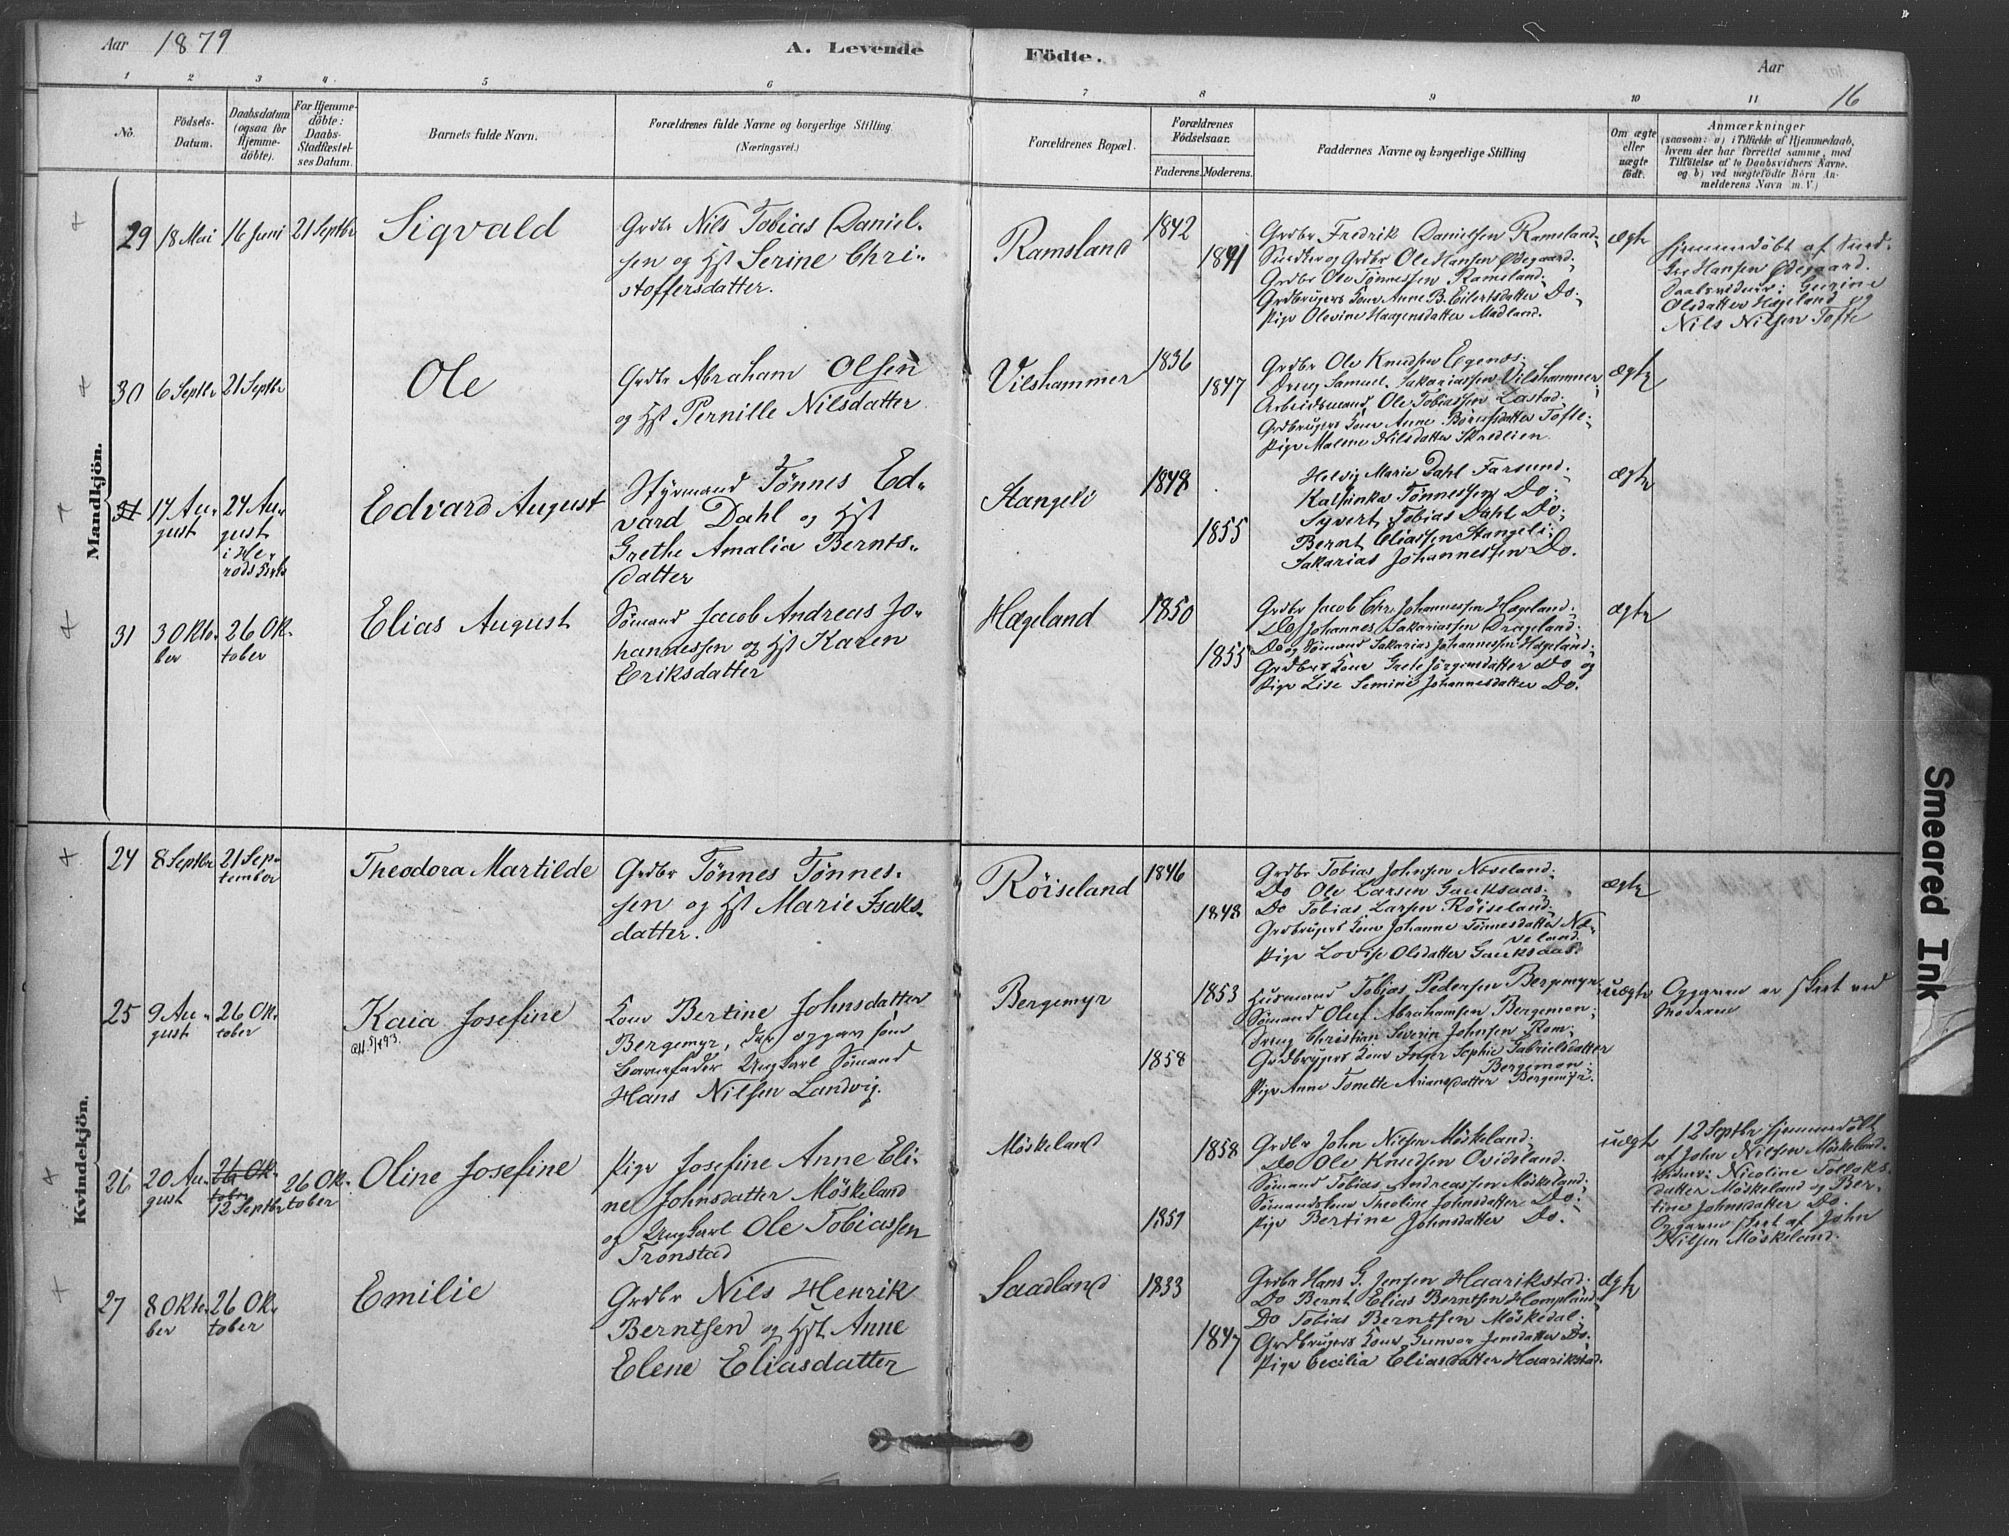 Aar 1879
A. Levende Födte.
Aar
16
1 2 3 4 5 6 7 8 9 10 11
No.
Födsels-
Datum.
Daabsdatum
(ogsaa for
Hjemme-
döbte).
For Hjemme-
döbte:
Daabs-
Stadfæstel-
ses Datum.
Barnets fulde Navn.
Forældrenes fulde Navne og borgerlige Stilling
(Næringsvei.)
Forældrenes Bopæl.
Forældrenes
Födselsaar.
Faderens.
Moderens.
Faddernes Navne og borgerlige Stilling
Om ægte
eller
uægte
födt.
Anmærkninger
(saasom: a) i Tilfælde af Hjemmedaab,
hvem der har forrettet samme, med
Tilföielse af to Daabsvidners Navne.
og b) ved uægtefödte Börn An-
melderens Navn (m. V.)
Mandkjön.
29
18 Mai
16 Juni
21 Septbr
Sigvald
Grdbr Nils Tobias Daniel-
sen og Hst Serine Chri-
stoffersdatter.
Ramsland
1842
1841
Grdbr Fredrik Danielsen Ramsland.
Snedker og Grdbr Ole Hansen Ødegaard.
Grdbr Ole Tønnessen Ramsland.
Grdbrugers Kone Anne B. Eilertsdatter Do.
Pige Olevine Haagensdatter Madland.
ægte
Hjemmedøbt af Sned.
Ole Hansen Ødegaard.
Daabsvidner: Gurine
Olsdatter Hægeland og
Nils Nilsen Tofte
30
6 Septbr
21 Septbr
Ole
Grdbr Abraham Olsen
og Hst Pernille Nilsdatter
Vilshammer
1836
1847
Grdbr Ole Knudsen Egenæs.
Dreng Samuel Sakariassen Vilshammer
Arbeidsmand Ole Tobiassen Lastad.
Grdbrugers Kone Anne Børufsdatter Tofte
Pige Malene Nilsdatter Skredlien.
ægte
31
17 Au-
gust
24 Au-
gust
i He-
rods Kirke
Edvard August
Styrmand Tönnes Ed-
vard Dahl og Hst
Grethe Amalia Bernts-
datter
Stangeli
1848
1855
Helvig Marie Dahl Farsund.
Kathinka Tønnessen Do.
Syvert Tobias Dahl Do.
Bernt Eliassen Stangeli.
Sakarias Johannessen Do.
ægte
31
3 Okto-
ber
26 Ok-
tober
Elias August
Sömand Jacob Andreas Jo-
hannessen og Hst Karen
Eriksdatter
Hægeland
1850
1855
Grdbr Jacob Chr. Johannessen Hægeland.
Do Johannes Sakariassen Drageland.
Do og Sømand Sakarias Johannessen Hægeland.
Grdbrs Kone Grete Jörgensdatter Do og
Pige Lise Semine Johannesdatter Do.
ægte
Kvindekjön.
24
8 Septbr
21 Sep-
tember
Theodora Martilde
Grdbr Tönnes Tönnes-
sen og Hst Marie Isaks-
datter.
Röiseland
1846
1848
Grdbr Tobias Johnsen Næveland.
Do Ole Larsen Gauksaas.
Do Tobias Larsen Röiseland.
Grdbrugers Kone Johanne Tønnesdatter Næ-
veland.
Pige Lovise Olsdatter Gauksaas.
ægte
25
9 Au-
gust
26 Ok-
tober
Kaia Josefine
Att. 5/4 93.
Kone Bertine Johnsdatter
Bergemyr, der opgav som
Barnefader Ungkarl Sömand
Hans Nilsen Landvig.
Bergemyr
1853
1858
Husmand Tobias Pedersen Bergemyr
Sømand Oluf Abrahamsen Bergemon.
Dreng Christian Severin Johnsen Rom.
Grdbrugers Kone Inger Sophie Gabrielsdatter
Bergemon.
Pige Anne Tonette Ariansdatter Bergemyr.
uægte
Opgaven er skeet ved
Moderen
26
20 Au-
gust
26 Ok-
tober
12 Septbr
26 Ok-
tober
Oline Josefine
Pige Josefine Anne Eli-
ne Johnsdatter Möskeland
og Ungkarl Ole Tobiassen
Tronstad
Möskeland
1858
1851
Grdbr John Nilsen Möskeland.
Do Ole Knudsen Ovidsland.
Sømand Tobias Andreassen Möskeland.
Sömandskone Theoline Johnsdatter Do.
Pige Bertine Johnsdatter Do.
uægte
12 Septbr hjemmedøbt
af John Nilsen Möskeland.
Vidner: Nicoline Tollaks-
datter Möskeland og Ber-
tine Johnsdatter Do.
Opgaven skeet af John
Nilsen Möskeland.
27
8 Okto-
ber
26 Ok-
tober
Emilie
Grdbr Nils Henrik
Berntsen og Hst Anne
Elene Eliasdatter
Saadland
1833
1847
Grdbr Hans G. Jensen Haarikstad.
Do Bernt Elias Berntsen Hompland
Do Tobias Berntsen Möskedal.
Grdbrugers Kone Gunvor Jensdatter Do.
Pige Cecilia Eliasdatter Haarikstad.
ægte
Smeared Ink